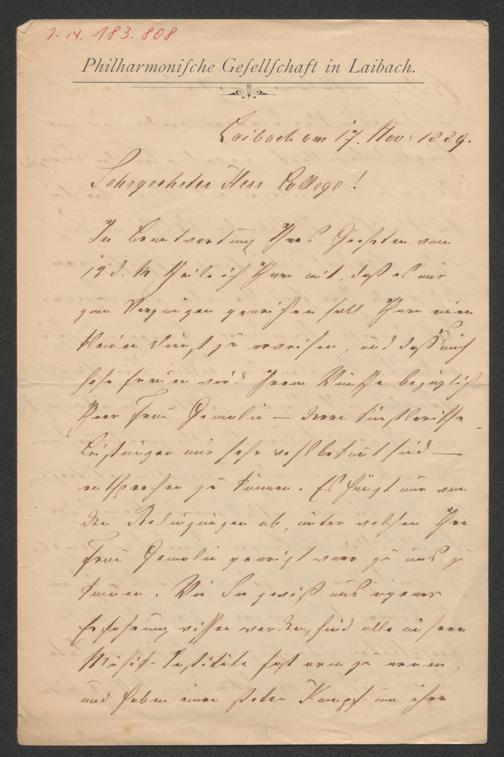 I.N. 183.808
Philharmonische Gesellschaft in Laibach.
Laibach am 17. Nov: 1889.
Sehrgeehrter Herr College!
In Beantwortung Ihres Geehrten vom
12 d. M theile ich Ihnen mit, daß es mir
zum Vergnügen gereichen soll Ihnen einen
kleinen Dienst zu erweisen, und daß es mich
sehr freuen wird Ihrem Wunsche bezüglich
Ihrer Frau Gemalin — deren künstlerische
Leistungen mir sehr wohl bekannt sind —
entsprechen zu können. Es hängt nur von
den Bedingungen ab, unter welchen Ihre
Frau Gemalin geneigt wäre zu uns zu
kommen. Wie Sie gewiß aus eigener
Erfahrung wissen werden, sind alle unsere
Musik-Institute fast arm zu nennen,
und haben einen steten Kampf um ihre